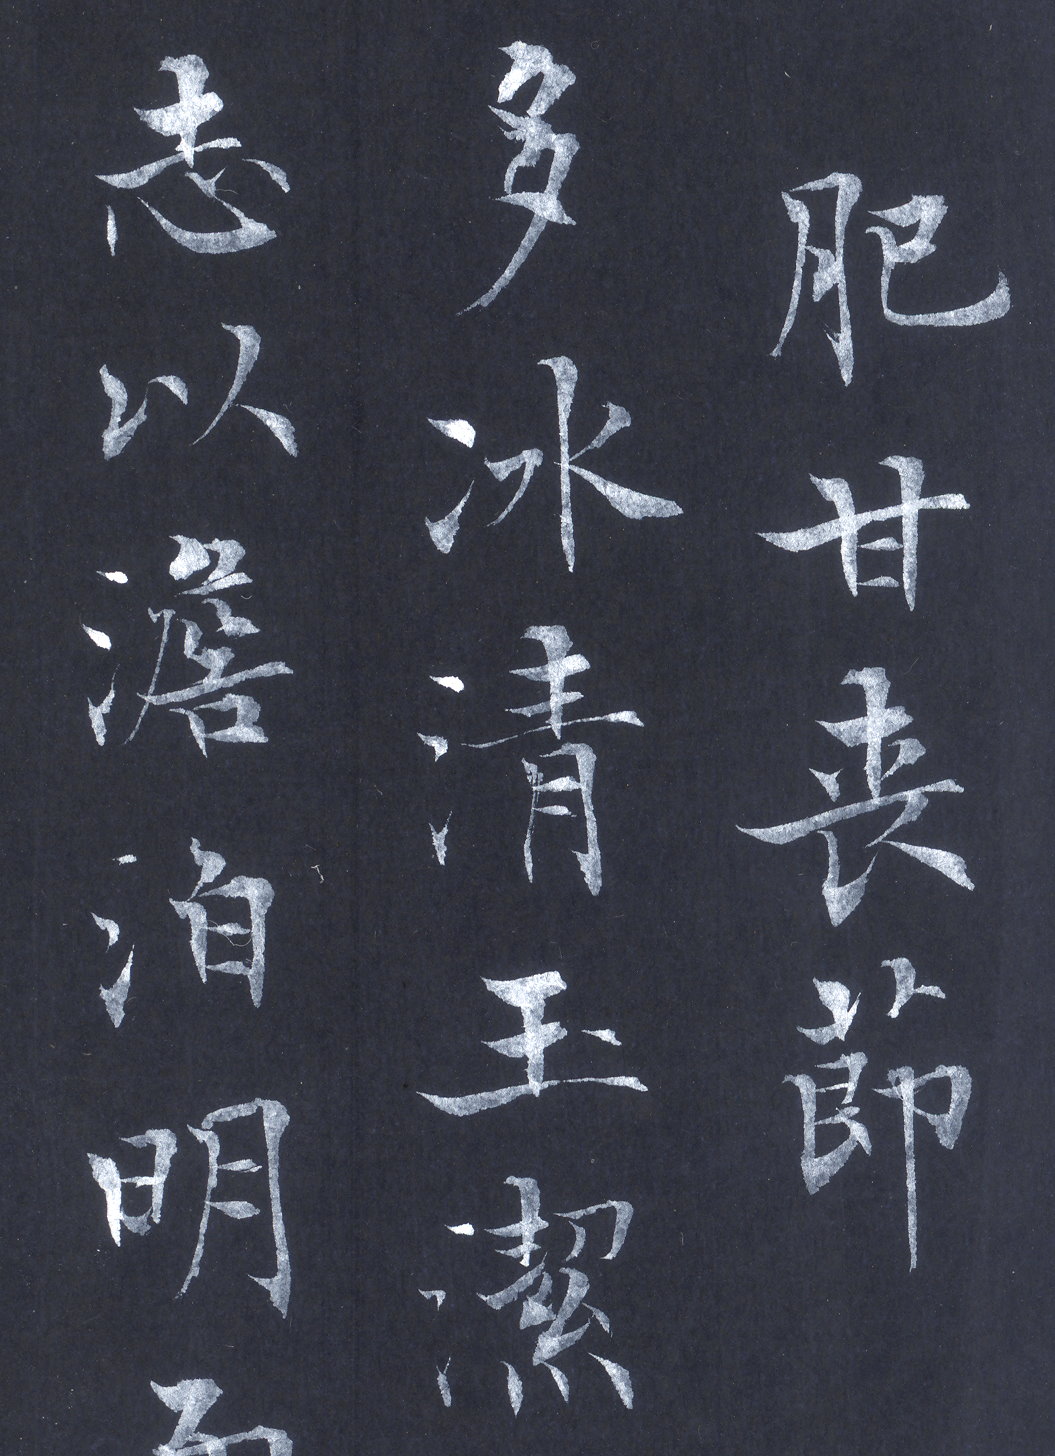 肥甘喪節
多冰清玉潔
志以澹泊明